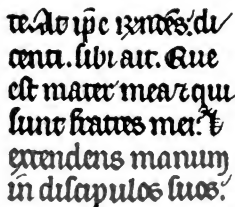 te. At ip̄e rn̄dēs. di/
centi. sibi ait. Que
est mater mea ⁊ qui
sunt fratres mei? ⁊
extendens manum
in discipulos suos.